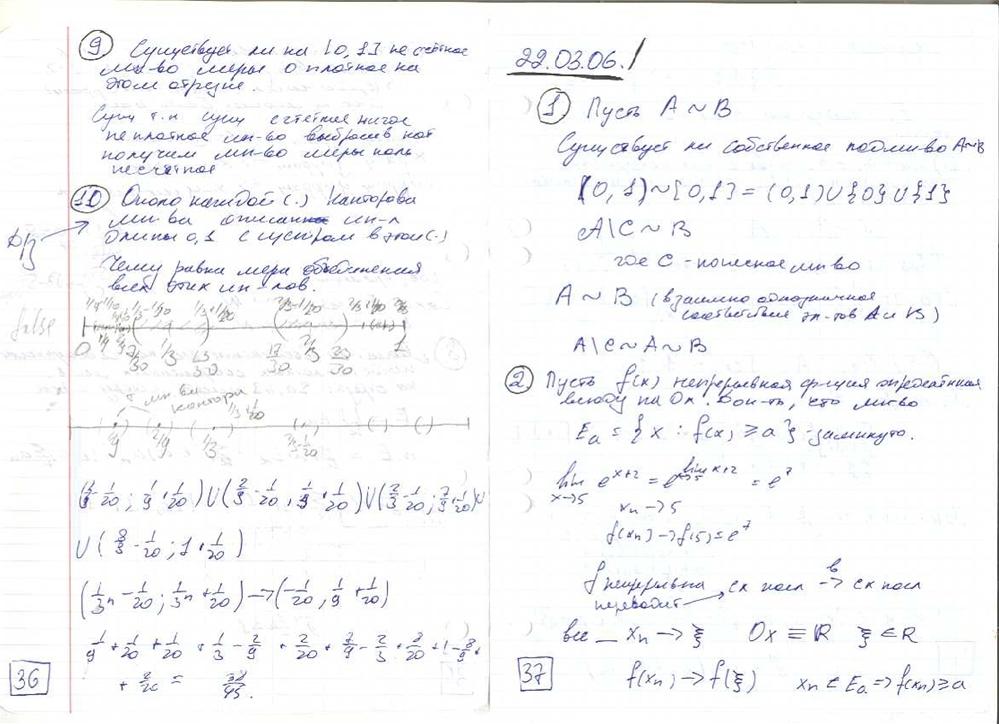 9 Существует ли на [0,1] не счётное
мн-во меры 0 плотное на
этом отрезке.
Сущ т.к сущ счётное нигде
не плотное мн-во выбросив кот
получим мн-во меры ноль
несчётное
10 Около каждой (.) Канторова
мн-ва описан ин-л
длины 0,1 с центром в этой (.)
Д/З
Чему равна мера объединения
всех этих ин-лов.
false
0 1/3 1
мн-ва
кантора
1/3+1/20
1/9 2/9 1/3 2/3-1/20
(1/9-1/20; 1/9+1/20) U (2/9-1/20, 1/3+1/20) U (2/3-1/20; 7/9+1/20) U
U (8/9-1/20; 1+1/20)
(1/3^n-1/20; 1/3^n+1/20) → (-1/20, 1/9+1/20)
1/9+1/20+1/20+1/3-2/9+2/20+7/9-2/3+2/20+1-8/9+
+2/20= 38/45.
36
22.03.06.
1 Пусть A~B
Существует ли собственное подмн-во A~B
(0,1)~[0,1]=(0,1)U{0}U{1}
A\C~B
где C - полезное мн-во
A~B (взаимно однозначное
соответствие эл-тов A и B)
A\C~A~B
2. Пусть f(x) непрерывная ф-ция определённая
всюду на Ox. Док-ть, что мн-во
Ea={x: f(x)≥a} замкнуто.
lim x→5 e^(x+2)=e^(lim x→5 x+2)=e^7
xn→5
f(xn)→f(5)=e^7
f непрерывна сх посл →в сх посл
переводит
все xn→ξ Ox≡R ξ∈R
f(xn)→f(ξ) xn∈Ea⇒f(xn)≥a
37